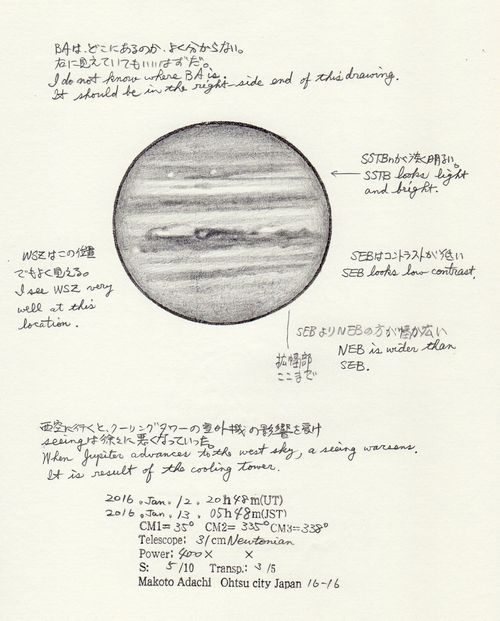 BAは、どこにあるのか、よく分からない。
右に見えていてもいいはずだ。
I do not know where BA is.
It should be in the right-side end of this drawing.
SSTBnが淡く明るい。
SSTB looks light
and bright.
WSZはこの位置
でもよく見える。
I see WSZ very
well at this
location.
SEBはコントラストが低い
SEB looks low contrast.
SEBよりNEBの方が幅が広い
NEB is wider than
SEB.
拡幅部
ここまで
西空に行くと、クーリングタワーの室外機の影響を受け
seeingは徐々に悪くなっていった。
When Jupiter advances to the west sky, a seeing worsens.
It is result of the cooling tower.
2016. Jan. 12. 20h48m(UT)
2016. Jan. 13. 05h48m(JST)
CM1= 35° CM2= 335° CM3= 338°
Telescope: 31cm Newtonian
Power: 400× ×
S: 5/10 Transp.: 3/5
Makoto Adachi Ohtsu city Japan 16-16